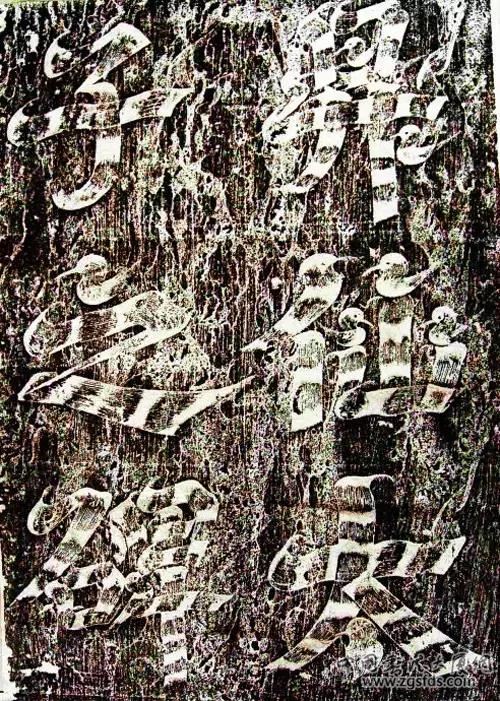 昇仙太
子之碑
www.zgsfds.com